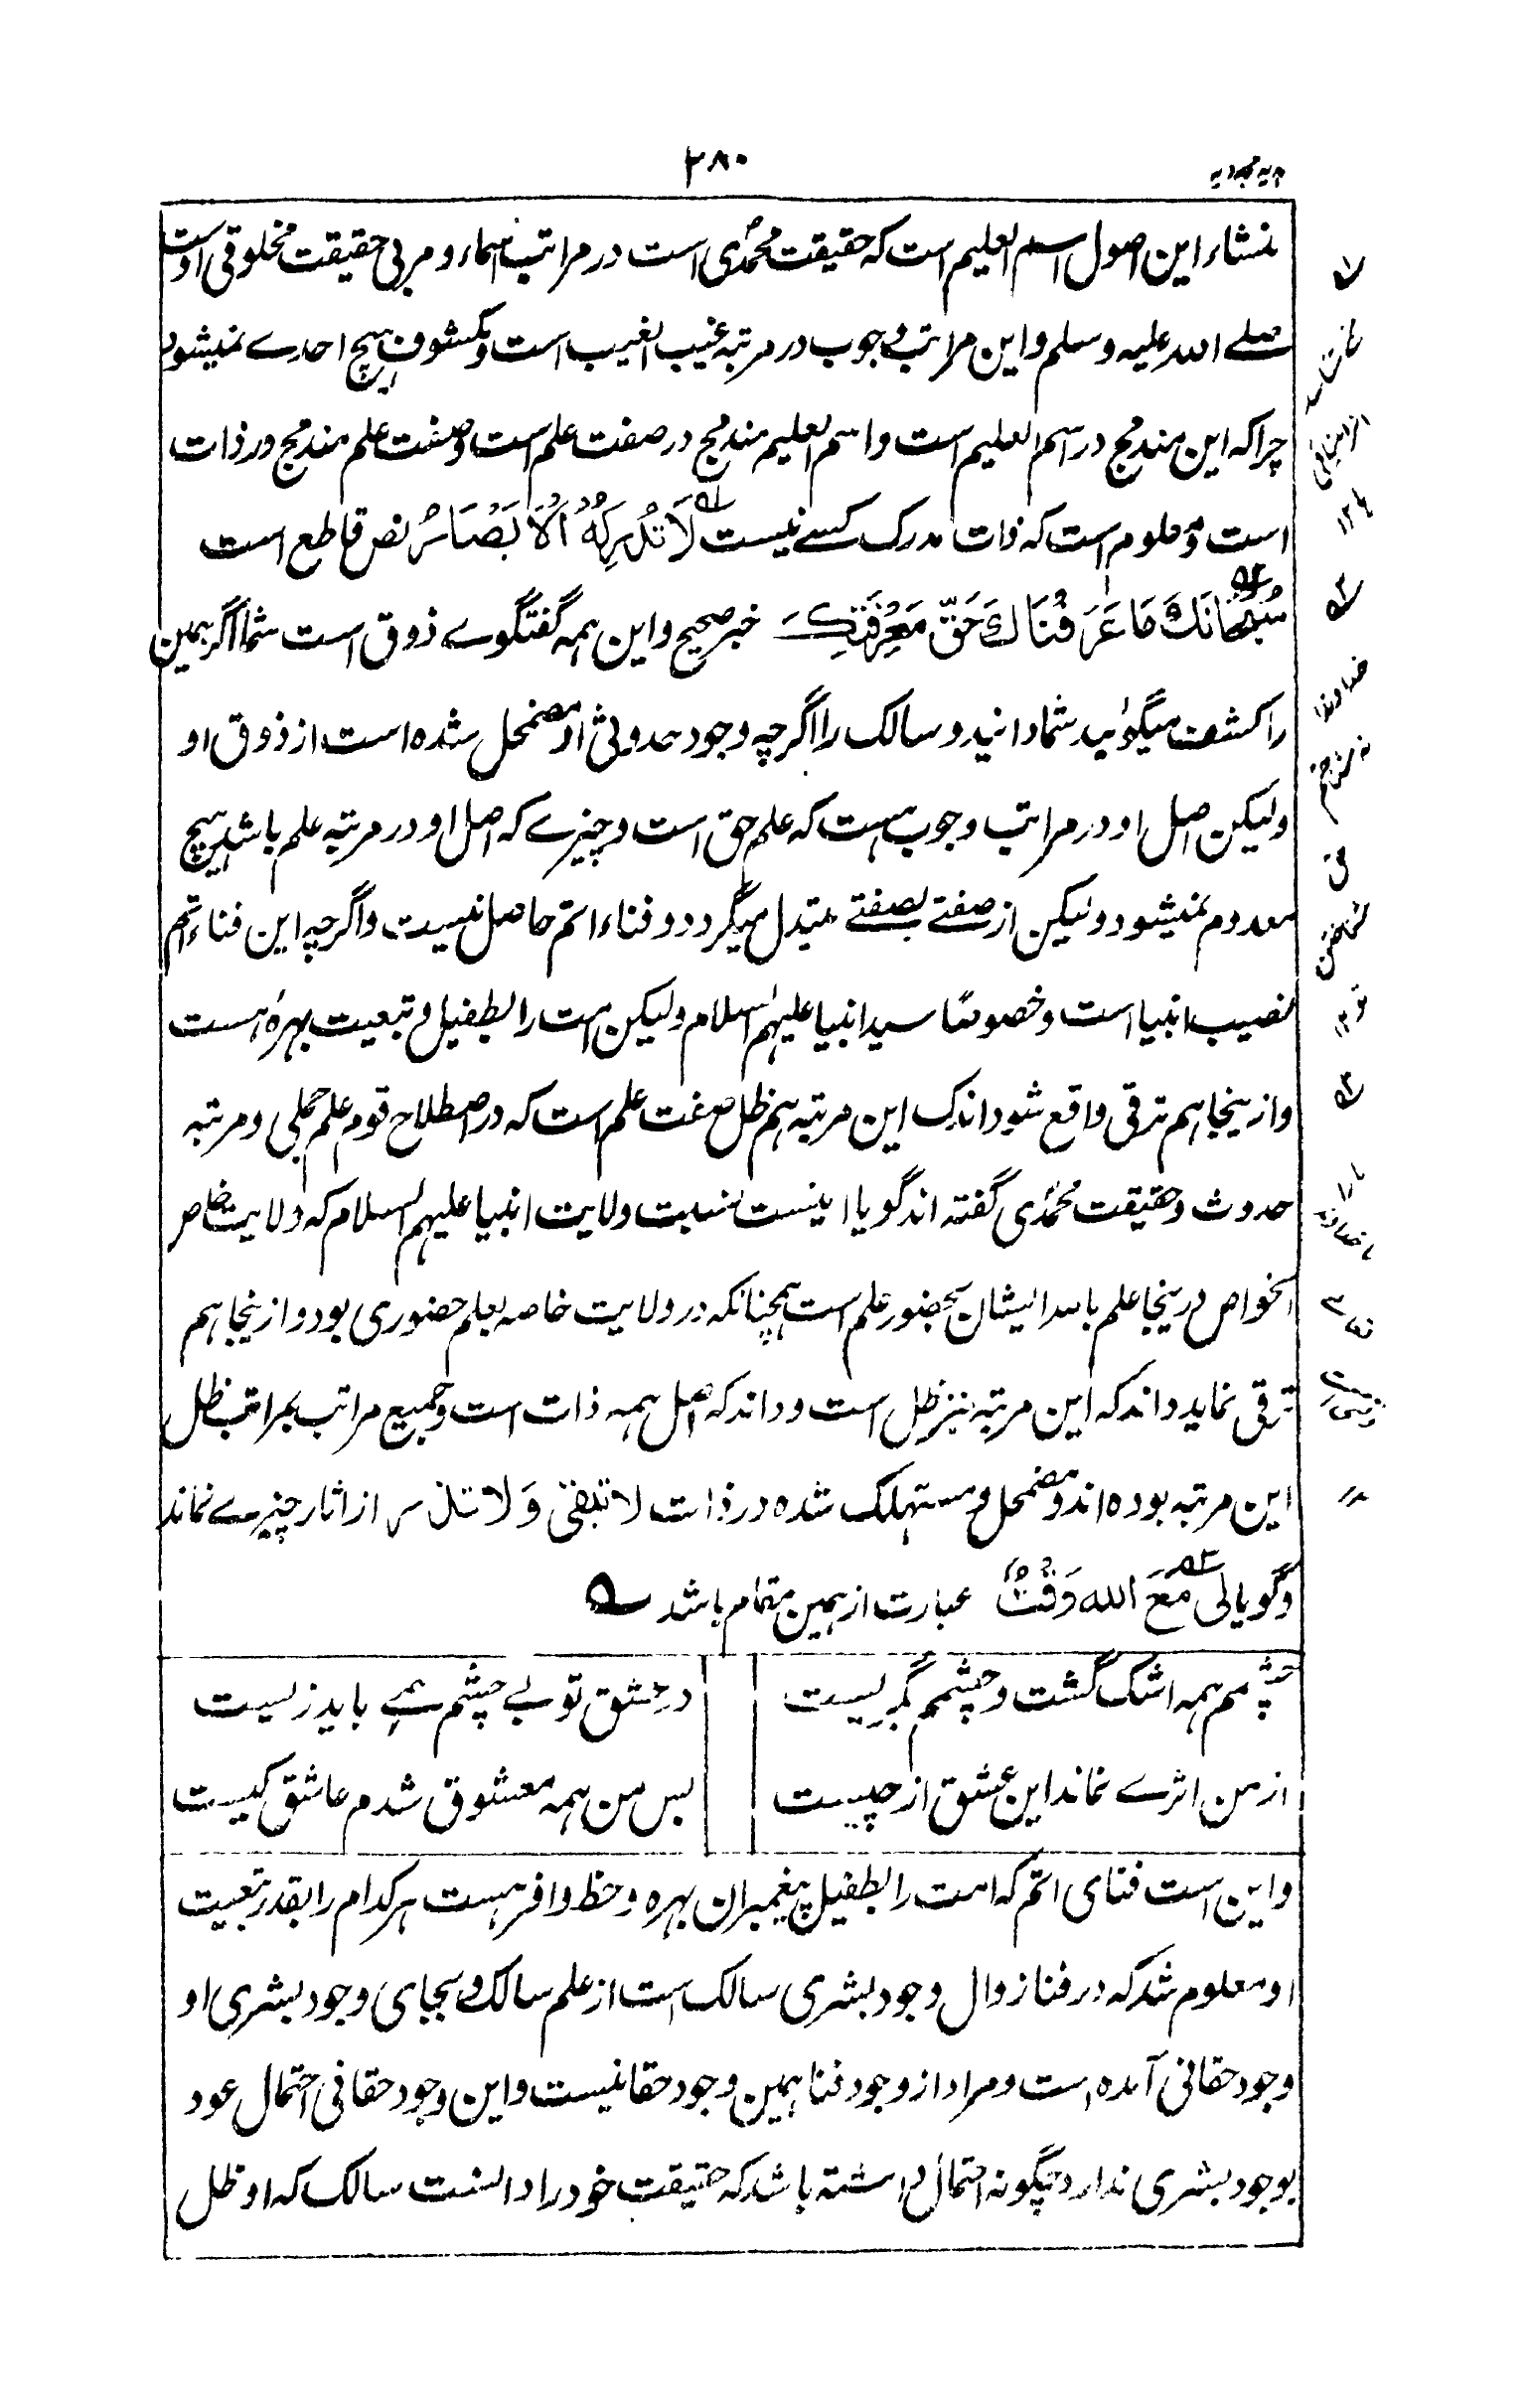 ۲۸۰
منشاء این اصول اسم العلیم است که حقیقت محمدی است در مراتب اسماء و مربی حقیقت مخلوقی اوست
صلے الله علیه وسلم و این مراتب وجوب در مرتبه غیب الغیب است و مکشوف هیچ احدے نمیشود
چرا که این مندمج در اسم العلیم است و اسم العلیم مندمج در صفت علم است و صفت علم مندمج در ذات
است و معلوم است که ذات مدرک کسے نیست لَا تُدْرِکُهُ الْاَبْصَارُ نص قاطع است
سُبْحَانَكَ مَا عَرَفْنَاكَ حَقَّ مَعْرِفَتِكَ خبر صحیح و این همه گفتگوے ذوق است شما اگر همین
را کشف میگوئید شما دانید و سالک را اگرچه وجود حدوثی او مضمحل شده است از ذوق او
ولیکن اصل او در مراتب وجوب هست که علم حق است و چیزے که اصل او در مرتبه علم باشد هیچ
معدوم نمیشود ولیکن از صفتے بصفتے متبدل میگردد و فناء اتم حاصل نیست و اگرچه این فناء اتم
نصیب انبیا است و خصوصًا سید انبیا علیهم السلام ولیکن امت را بطفیل و تبعیت بهره هست
و ازینجا هم ترقی واقع شود اندک این مرتبه هم ظل صفت علم است که در اصطلاح قوم علم جملی و مرتبه
حدوث و حقیقت محمدی گفته اند گویا اینست نسبت ولایت انبیا علیهم السلام که ولایت خاص
الخواص درینجا علم بالله ایشان بحضور علم است همچنانکه در ولایت خاصه بعلم حضوری بود و ازینجا هم
ترقی نماید داند که این مرتبه نیز ظل است و داند که اصل همه ذات است و جمیع مراتب بمراتب ظل
این مرتبه بوده اند و مضمحل و مستهلک شده در ذات لا تبقی وَ لا تذر از اثار چیزے نماند
و گویا لی مَعَ الله وَقْتٌ عبارت از همین مقام باشد
چشمم همه اشک گشت و چشمم بگریست در عشق تو بے چشم همے باید زیست
از من اثرے نماند این عشق از چیست پس من همه معشوق شدم عاشق کیست
و این است فنای اتم که امت را بطفیل پیغمبران بهره و حظ وافر هست هر کدام را بقدر تبعیت
او معلوم شد که در فنا زوال وجود بشری سالک است از علم سالک و بجای وجود بشری او
وجود حقانی آمده است و مراد از وجود فنا همین وجود حقانیست و این وجود حقانی احتمال عود
بوجود بشری ندارد چگونه احتمال داشته باشد که حقیقت خود را دانست سالک که او ظل